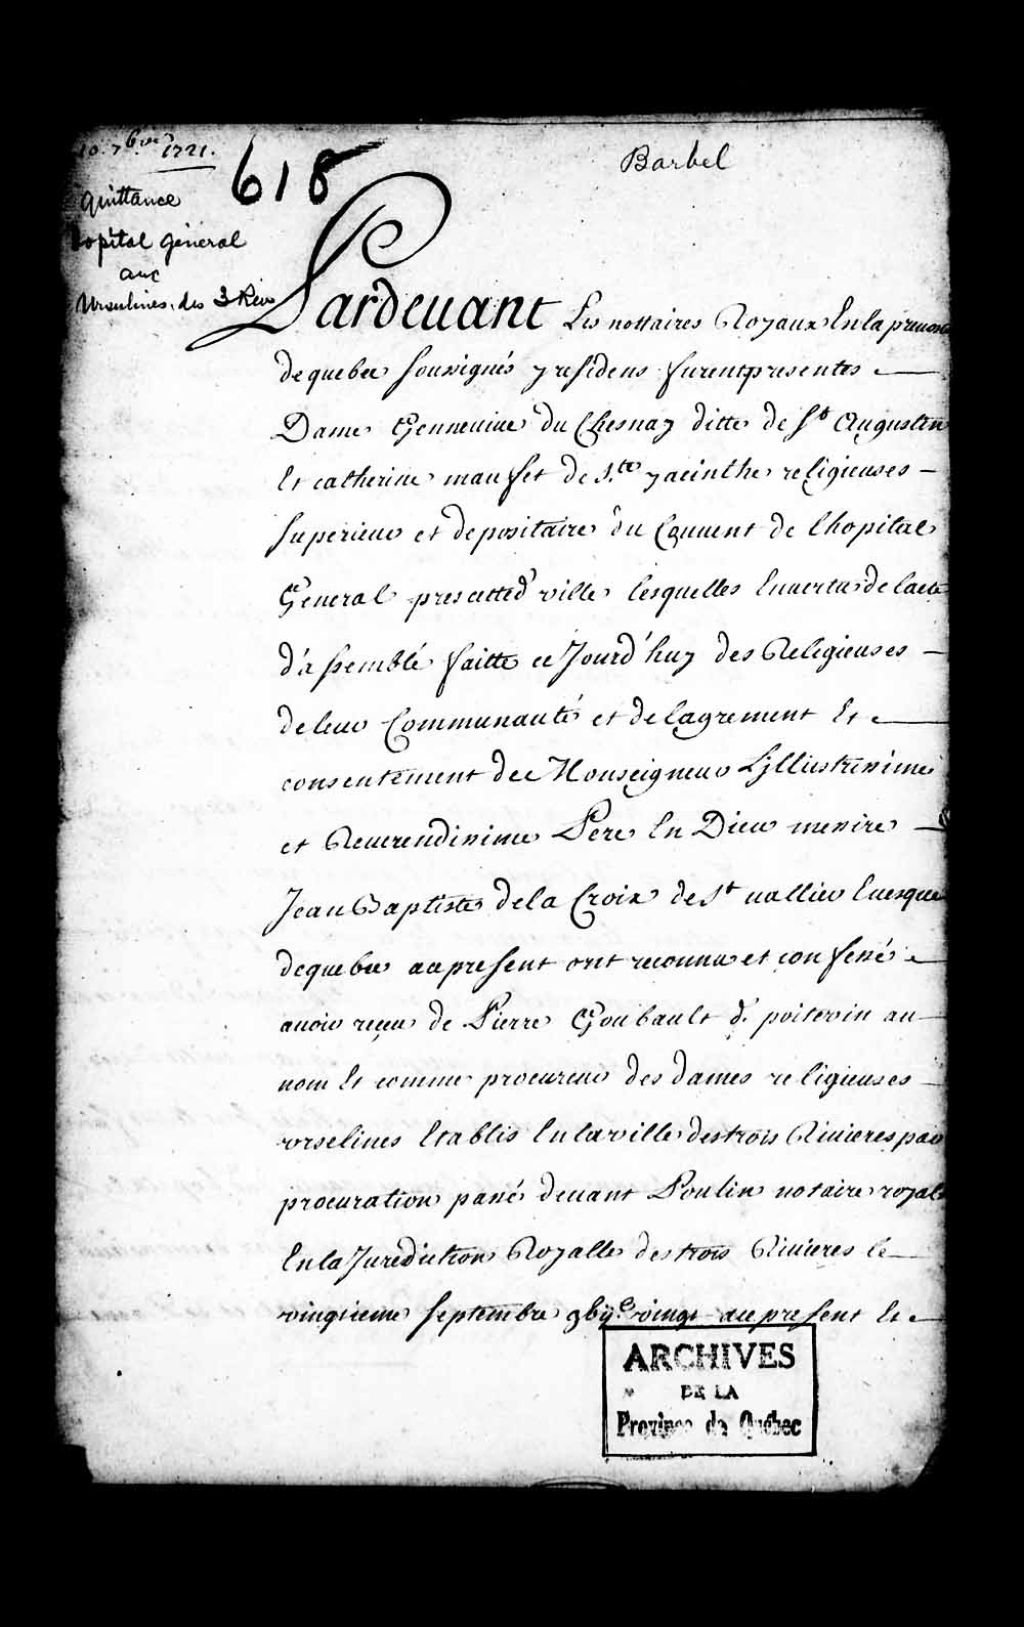 10. 7bre 1721.
618
Barbel
Quittance
hopital général
aux
Ursulines des 3 Riv.
Pardeuant Les nottaires Royaux En la preuosté
de quebec soussignés y residens furent presentes
Dame Genneuiue du Chesnay ditte de St Augustin
Et catherine maufet de Ste yacinthe religieuses
superieure et depositaire du Conuent de lhopital
General pres cette d' ville lesquelles En uertu de lacte
d'assemblé faitte ce Jourd'huy des Religieuses
de leur Communauté et de lagrement Et
consentement de Monseigneur Lillustrissime
et Reuerendissime Pere En Dieu messire
Jean Baptiste de la Croix de St uallier Euesque
de quebec a ce present ont reconnu et confessé
auoir reçeu de Pierre Goubault d. poitevin au
nom Et comme procureur des dames religieuses
vrselines Etablis En la ville des trois Riuieres par
procuration passé deuant Poulin notaire royal
En la Juridiction Royalle des trois Riuieres le
vingtieme septembre gbijc vingt a ce present Et
ARCHIVES
DE LA
Province de Québec